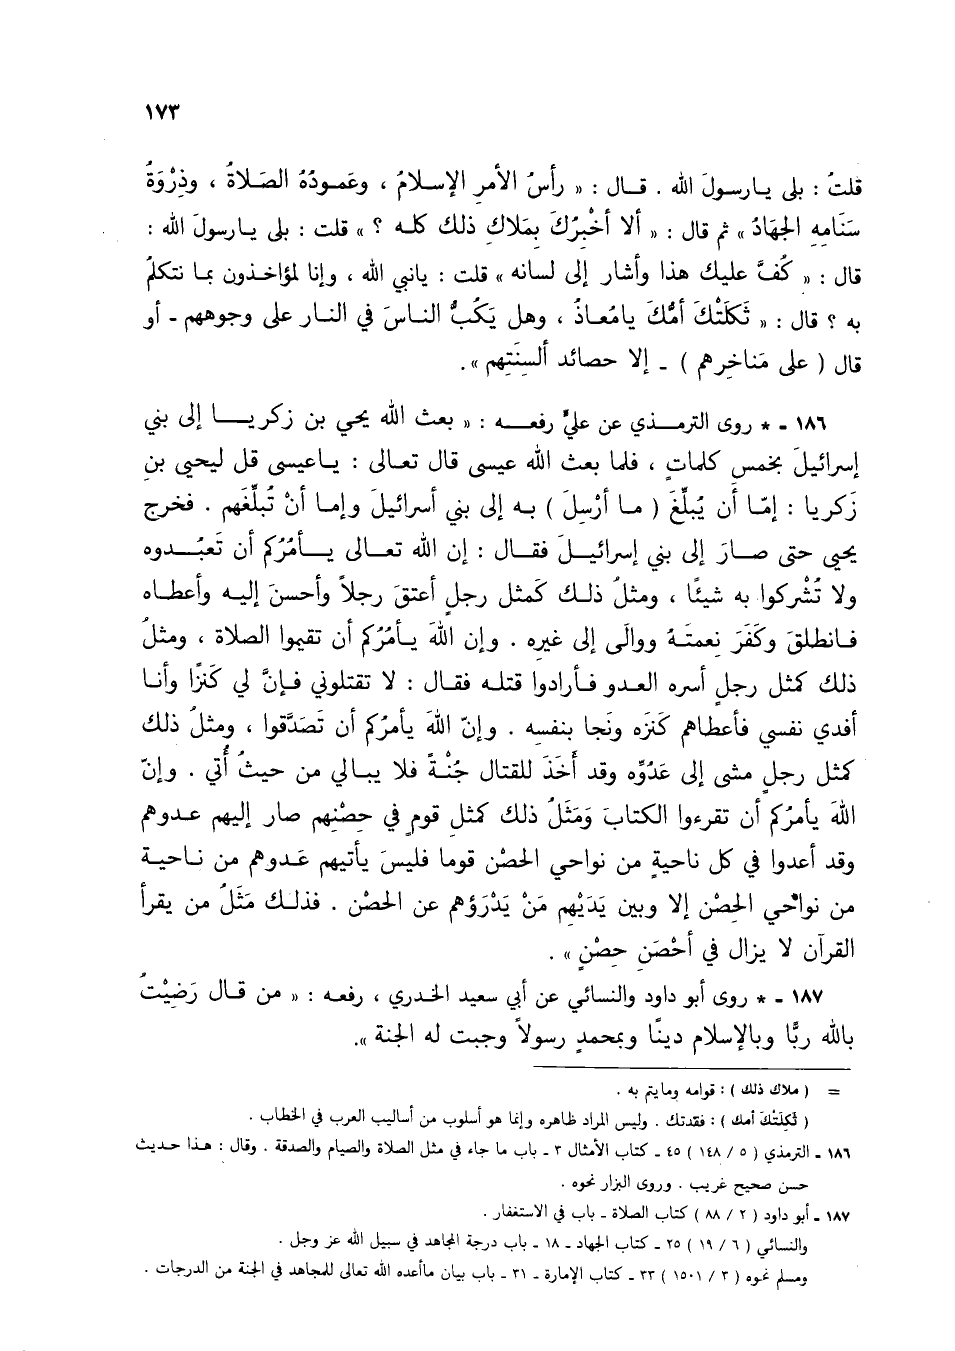 ١٧٣
قلتُ : بلى يارسولَ الله . قال : « رأسُ الأمرِ الإسلامُ ، وعَمودُهُ الصَلاةُ ، وذِرْوَةُ
سَنَامِهِ الجِهَادُ » ثم قال : « ألا أخْبِرُكَ بِمَلاكِ ذلك كله ؟ » قلت : بلى يارسولَ الله :
قال : « كُفَّ عليك هذا وأشار إلى لسانه » قلت : يانبي الله ، وإنا لمؤاخذون بما نتكلمُ
به ؟ قال : « ثَكِلَتْكَ أمُّكَ يامُعاذُ ، وهل يَكُبُّ الناسَ في النار على وجوههم - أو
قال ( على مَناخِرِهم ) - إلا حصائد ألسِنَتِهم » .
١٨٦ - * روى الترمذي عن عليٍّ رفعه : « بعث الله يحيي بن زكريا إلى بني
إسرائيلَ بخمسِ كلماتٍ ، فلما بعث الله عيسى قال تعالى : ياعيسى قل ليحيى بنِ
زَكريا : إمّا أن يُبلّغَ ( ما أرْسِلَ ) به إلى بني أسرائيلَ وإما أنْ تُبلّغَهم . فخرج
يحيى حتى صارَ إلى بني إسرائيلَ فقال : إن الله تعالى يأمُرُكم أن تَعبُدوه
ولا تُشْركوا به شيئًا ، ومثلُ ذلك كَمثل رجلٍ أعتقَ رجلاً وأحسنَ إليه وأعطاه
فانطلقَ وكَفَرَ نعمتَهُ ووالَى إلى غيرِه . وإن اللهَ يأمُرُكم أن تقيموا الصلاة ، ومثلُ
ذلك كمثل رجلٍ أسره العدو فأرادوا قتله فقال : لا تقتلوني فإنَّ لي كَنزًا وأنا
أفدي نفسي فأعطاهم كَنزَه ونَجا بنفسِه . وإنّ اللهَ يأمرُكم أن تَصَدَّقوا ، ومثلُ ذلك
كمثل رجلٍ مشى إلى عَدُوِّه وقد أَخَذَ للقتال جُنّةً فلا يبالي من حيثُ أُتي . وإنّ
اللهَ يأمرُكم أن تقرءوا الكتابَ وَمَثَلُ ذلك كمثلِ قومٍ في حِصْنِهم صار إليهم عدوهم
وقد أعدوا في كل ناحيةٍ من نواحي الحصْن قوما فليسَ يأتيهم عَدوهم من ناحية
من نواحي الحِصْن إلا وبين يَدَيْهِم مَنْ يَدْرَؤهم عن الحصْن . فذلك مَثَلُ من يقرأ
القرآن لا يزال في أحْصَنِ حِصْنٍ » .
١٨٧ - * روى أبو داود والنسائي عن أبي سعيد الخدري ، رفعه : « من قال رَضِيْتُ
بالله ربًّا وبالإسلام دينًا وبمحمدٍ رسولاً وجبت له الجنة » .
= ( ملاك ذلك ) : قوامه ومايتم به .
( ثَكِلَتْكَ أمك ) : فقدتك . وليس المراد ظاهره وإنما هو أسلوب من أساليب العرب في الخطاب .
١٨٦ - الترمذي ( ٥ / ١٤٨ ) ٤٥ - كتاب الأمثال ٣ - باب ما جاء في مثل الصلاة والصيام والصدقة . وقال : هذا حديث
حسن صحيح غريب . وروى البزار نحوه .
١٨٧ - أبو داود ( ٢ / ٨٨ ) كتاب الصلاة - باب في الاستغفار .
والنسائي ( ٦ / ١٩ ) ٢٥ - كتاب الجهاد - ١٨ - باب درجة المجاهد في سبيل الله عز وجل .
ومسلم نحوه ( ٣ / ١٥٠١ ) ٣٣ - كتاب الإمارة - ٣١ - باب بيان ماأعده الله تعالى للمجاهد في الجنة من الدرجات .